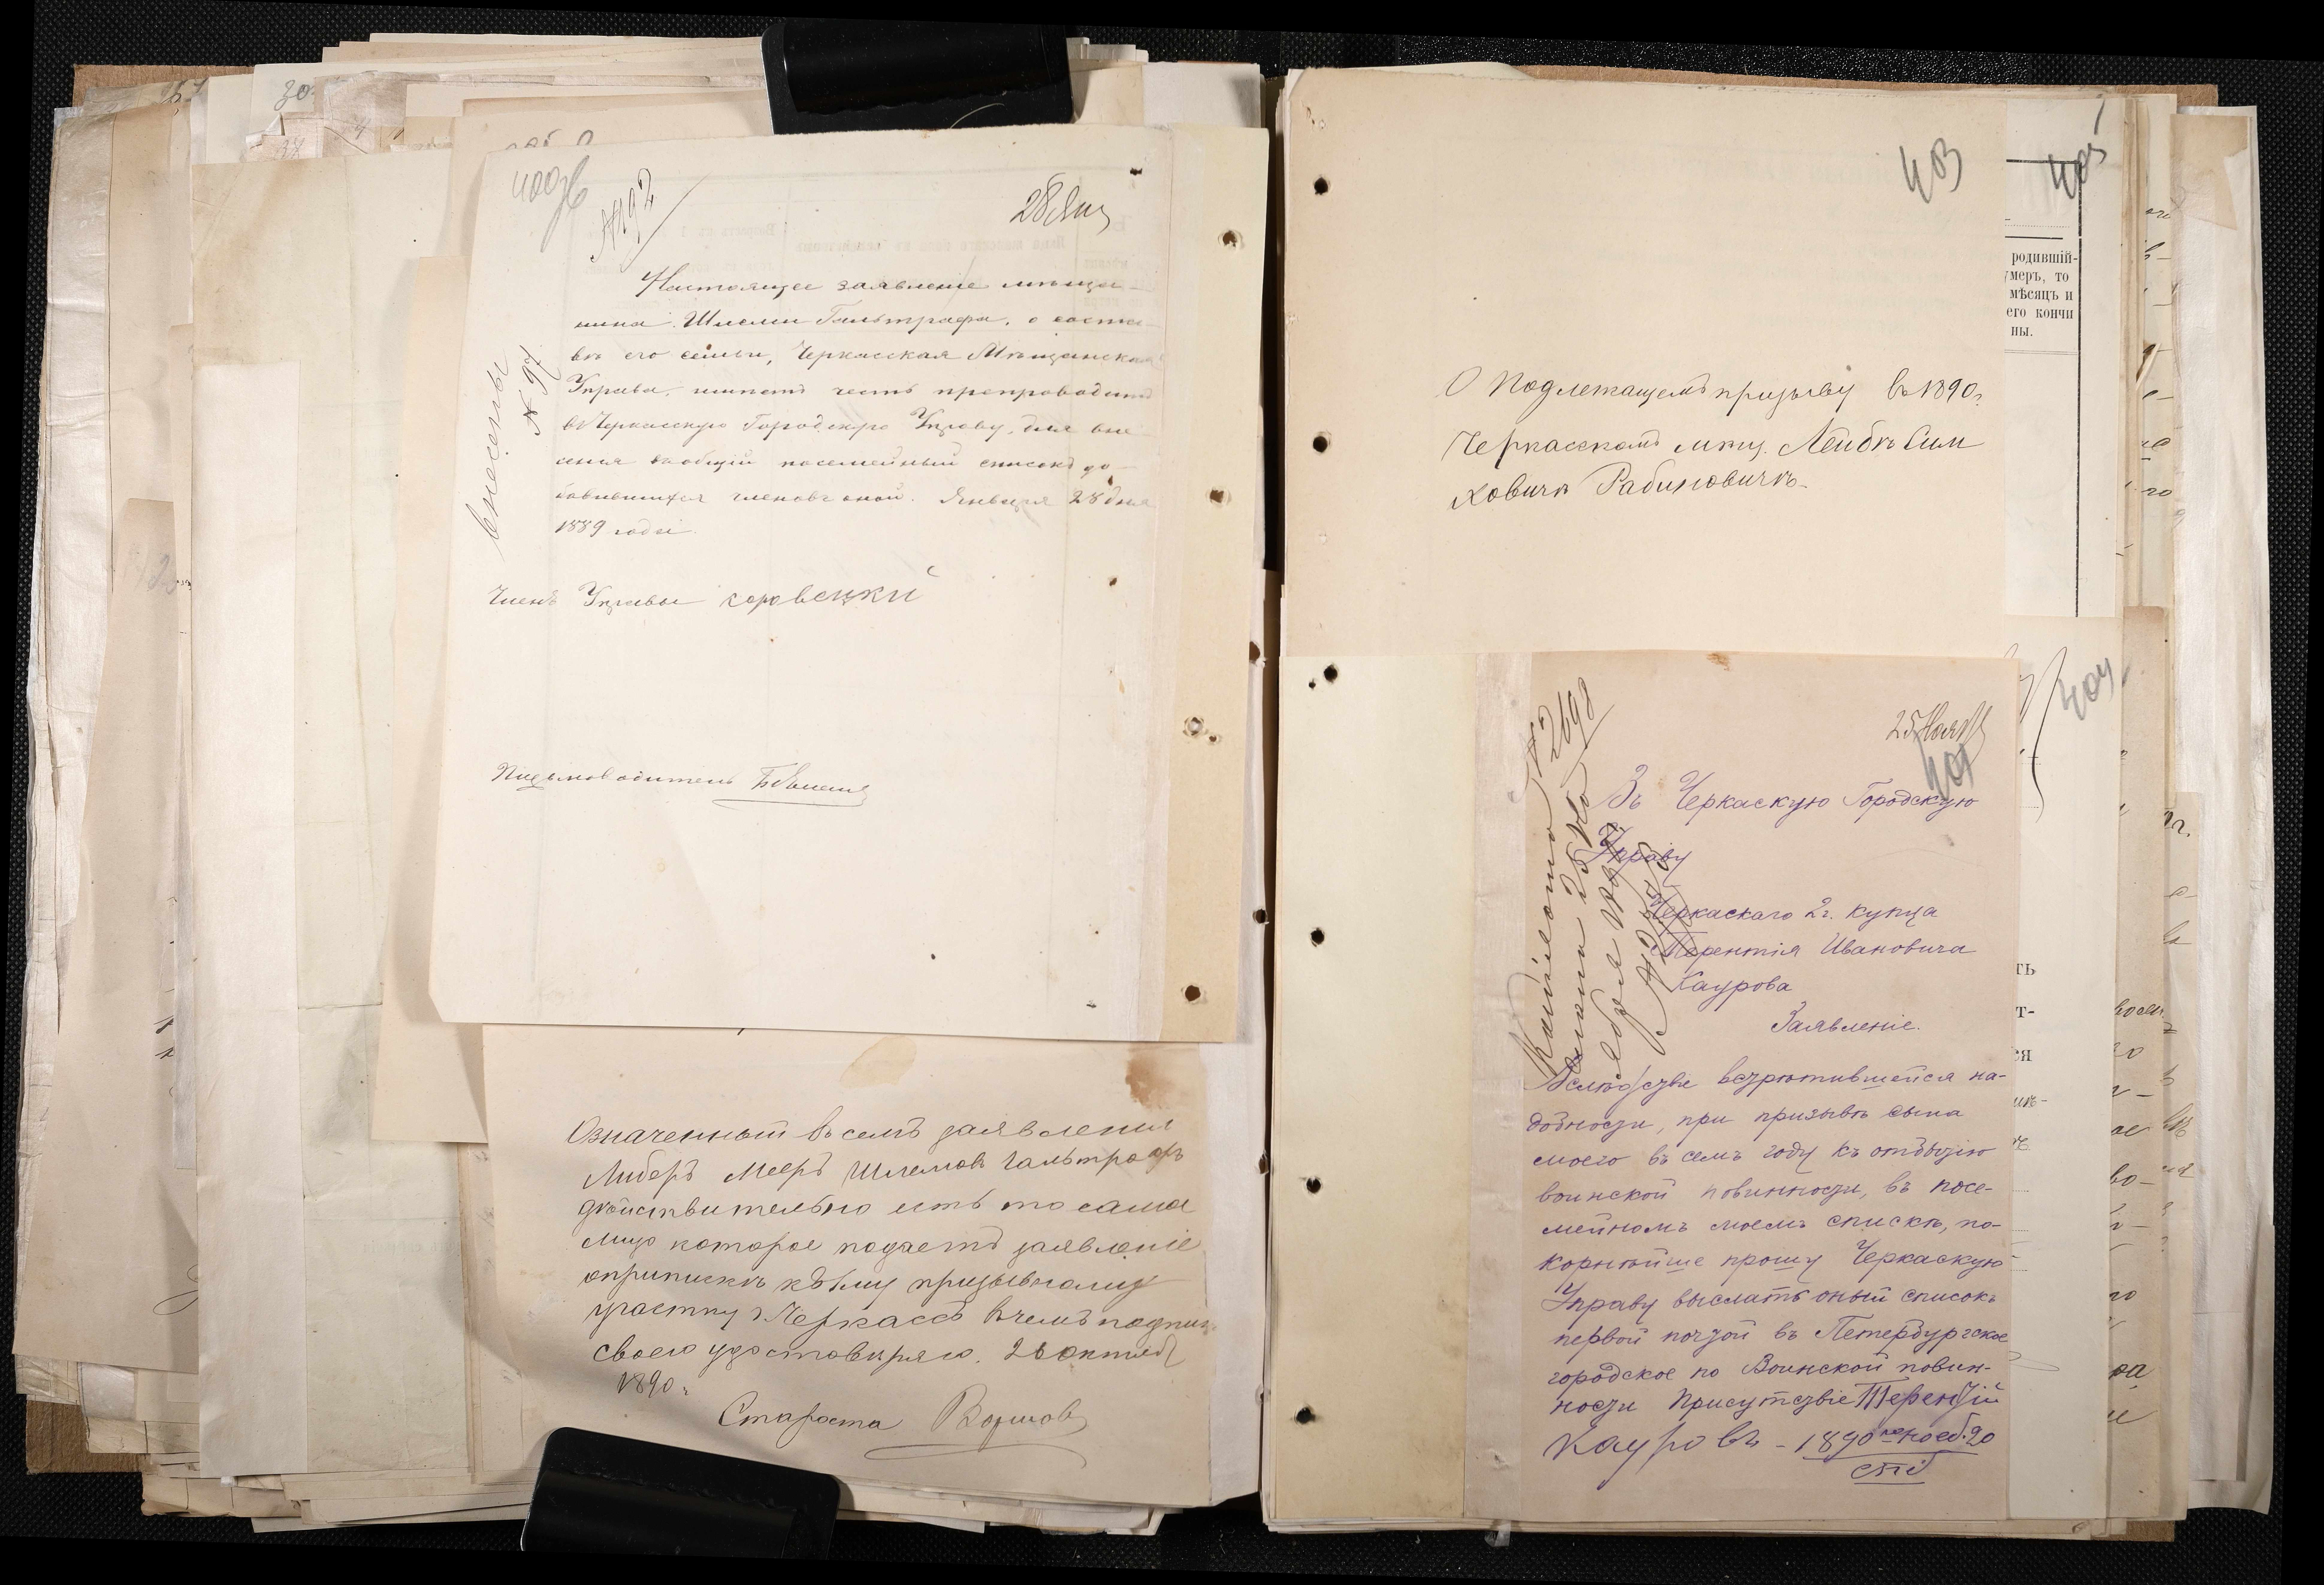 400об
№192
28 Янв
Настоящее заявление мѣща-
нина Шлемы Гальтрафа, о соста-
вѣ его семьи, Черкасская Мѣщанская
Управа, имѣетъ честь препроводить
въ Черкасскую Городскую Управу, для вне-
сенія въ общій посемейный списокъ до-
бавившихся членовъ оной. Января 28 дня
1889 года.
внесены
№ 97
Членъ Управы
Письмоводитель
Означенный въ семъ заявленіи
Либеръ Мееръ Шлемов Гальтрафъ
дѣйствительно есть то самое
лицо которое подаетъ заявленіе
о припискѣ къ 1му призывному
участку г Черкассъ в чемъ подписью
своею удостовѣряю. 26 октяб
1890 г
Староста
403
О подлежащемъ призыву въ 1890 г.
Черкасскомъ мѣщ. Лейбѣ Сим
ховичѣ Рабиновичѣ.
405
родившій-
умеръ, то
мѣсяцъ и
его кончи
ны.
404
№ 2698
25 Нояб
401
Въ Черкаскую Городскую
Управу
Черкаскаго 2 г. купца
Терентія Ивановича
Каурова
Заявленіе.
Вслѣдствіе встрѣтившейся на-
добности, при призывѣ сына
моего въ семъ году къ отбытію
воинской повинности, въ посе-
мейномъ моемъ спискѣ, по-
корнѣйше прошу Черкаскую
Управу выслать оный списокъ
первой почтой въ Петербургское
городское по Воинской повин-
ности Присутствіе Терентій
Кауровъ - 1890 го нояб. 20
спб